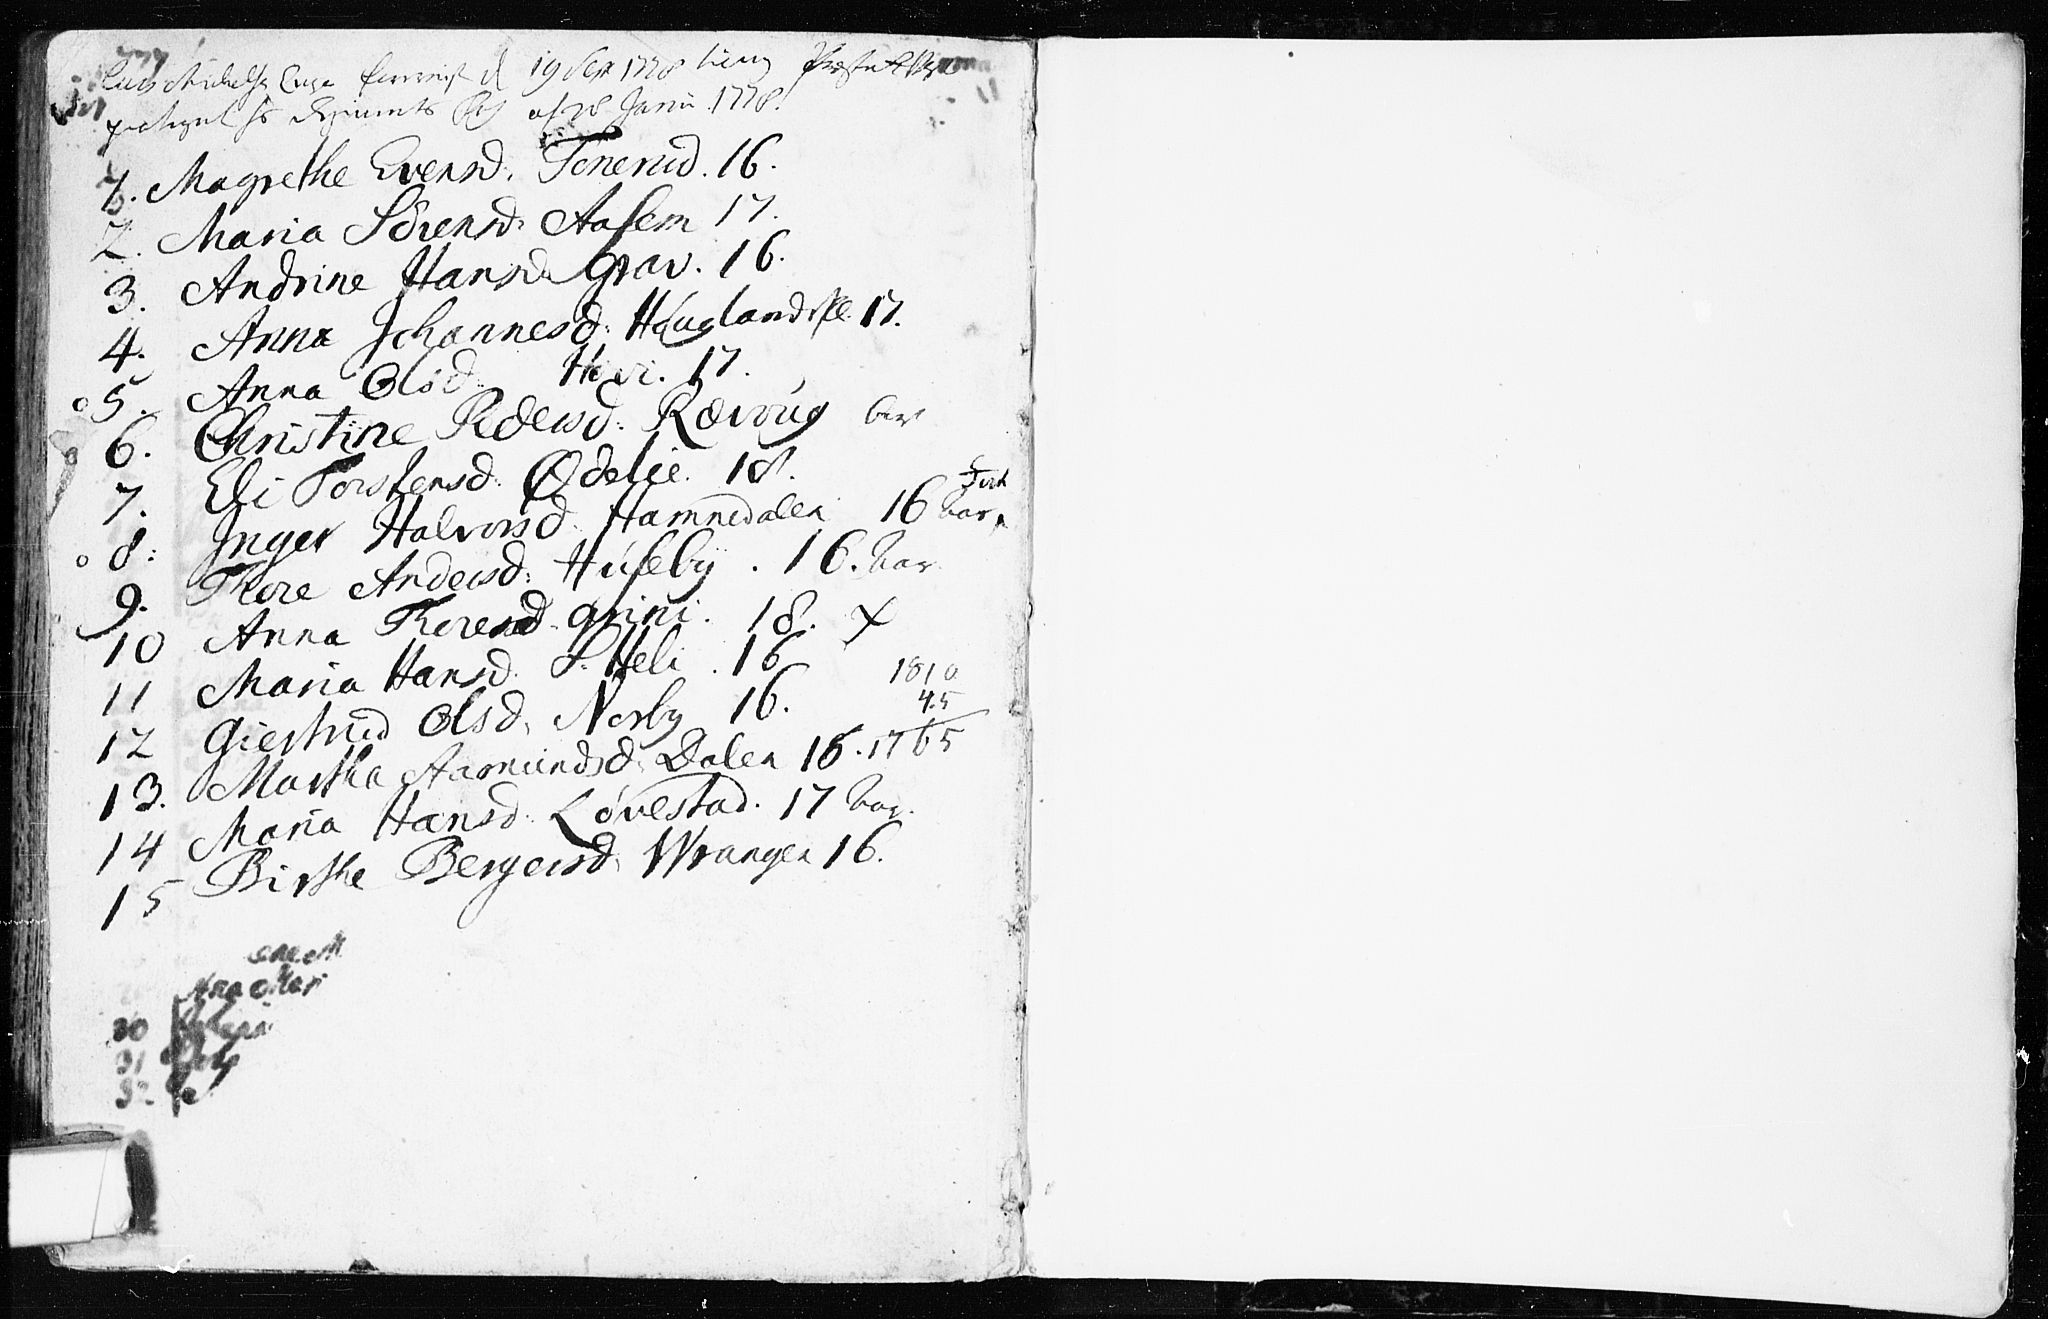 19 Sept 1778
Regiments af 28 Janu: 1778.
1. Magrethe Evensd. Tonerud. 16.
2. Maria Sörensd: Aasem 17.
3. Andrine Hansd: Grav. 16.
4. Anna Johannesd: Houglandsfle. 17.
5. Anna Olsd: Hovi. 17.
6. Christine Pedersd: Rævoug bar
7. Eli Torstensd: Ødelie. 18.
8: Inger Halvorsd: Hamnedalen 16 bar.
9. Thore Andersd: Huseby. 16. bar.
10 Anna Thoresd. Grini. 18. X
11 Maria Hansd. S. Heli. 16
1810
12 Giertrud Olsd. Norby 16.
45
13. Martha Aamundsd: Dalen 16. 1765
14 Maria Hansd: Løvestad. 17 bar.
15 Birthe Bergersd: Wrangen 16.
30
31
32.